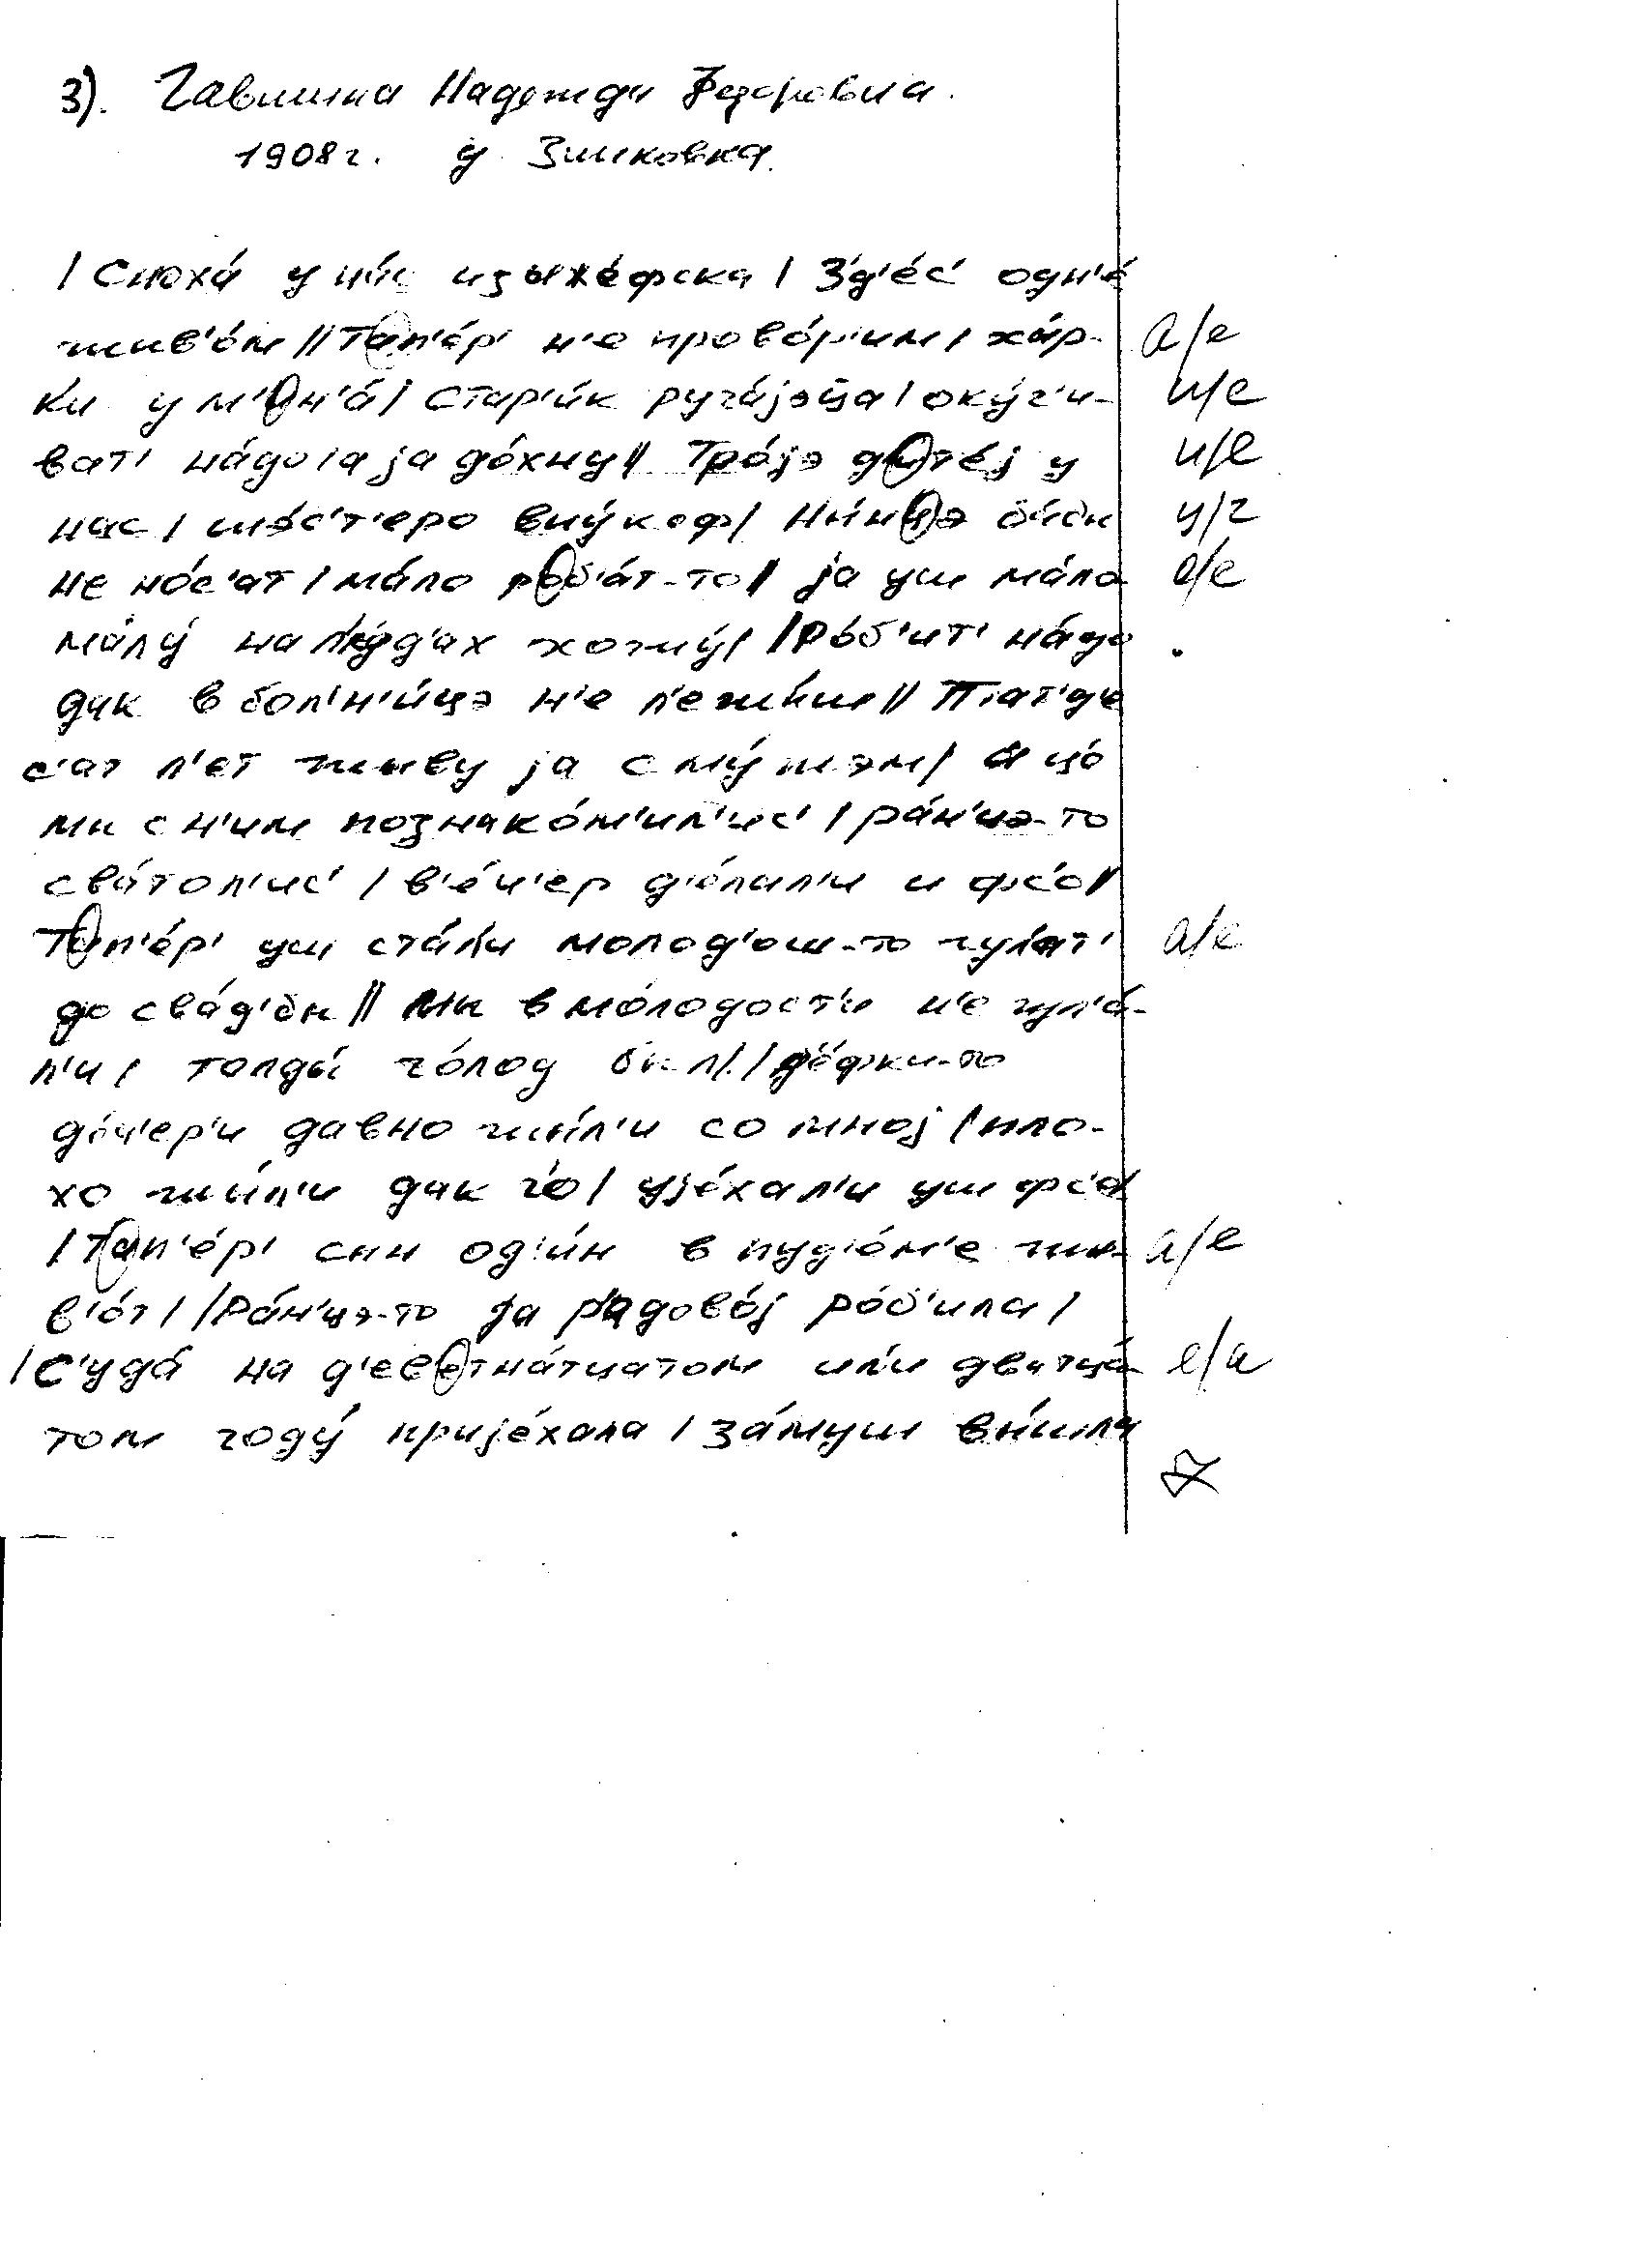 3). Гавшина Надежда Федоровна.
1908г. д. Зимковка.
/ Сноха́ у на́с изыхе́фска / З'д'е́с' одн'е́
жив'о́м // Тап'е́р' н'е прово́р'им / ха́р- а/е
ки у м'ин'а́ / стар'и́к руга́јэца / оку́ч'и- и/е
ват' на́до / а ја до́хну // Тро́јэ дит'е́j у и/е
нас / шэ́с'т'еро вну́коф / Ны́нцэ ба́бы ц/ч
не но́с'ат / ма́ло роб'а́т-то // jа уш ма́ло
ма́лу на л'у́д'ах хожу́ / / Ро́б'ит' на́до
дак в бол'н'и́цэ н'е л'ежи́ш // П'ат'д'е
с'ат л'ет живу ја с му́жэм / а цо́
мы с н'им познако́м'ил'ис' / ра́н'шэ-то
сва́тол'ис' / в'е́ч'ер д'е́лал'и и фс'о //
Тап'е́р' уш ста́л'и молод'ош-то гул'ат' а/е
до сва́д'бы // Мы в мо́лодост'и н'е гул'а́-
л'и / толды́ го́лод был / / де́фки-то
до́ч'ер'и давно жы́л'и со мној / пло-
хо жы́л'и дак чо́ / ује́хал'и уш фс'е /
/ Тап'е́р' сын од'и́н в пуд'о́м'е жы- а/е
в'о́т / / Ра́н'шэ-то ја р'адово́ј ро́б'ила /
/ С'уда́ на д'еветна́тцатом или двацца́ е/а
том году́ прије́хала / за́муш вы́шла